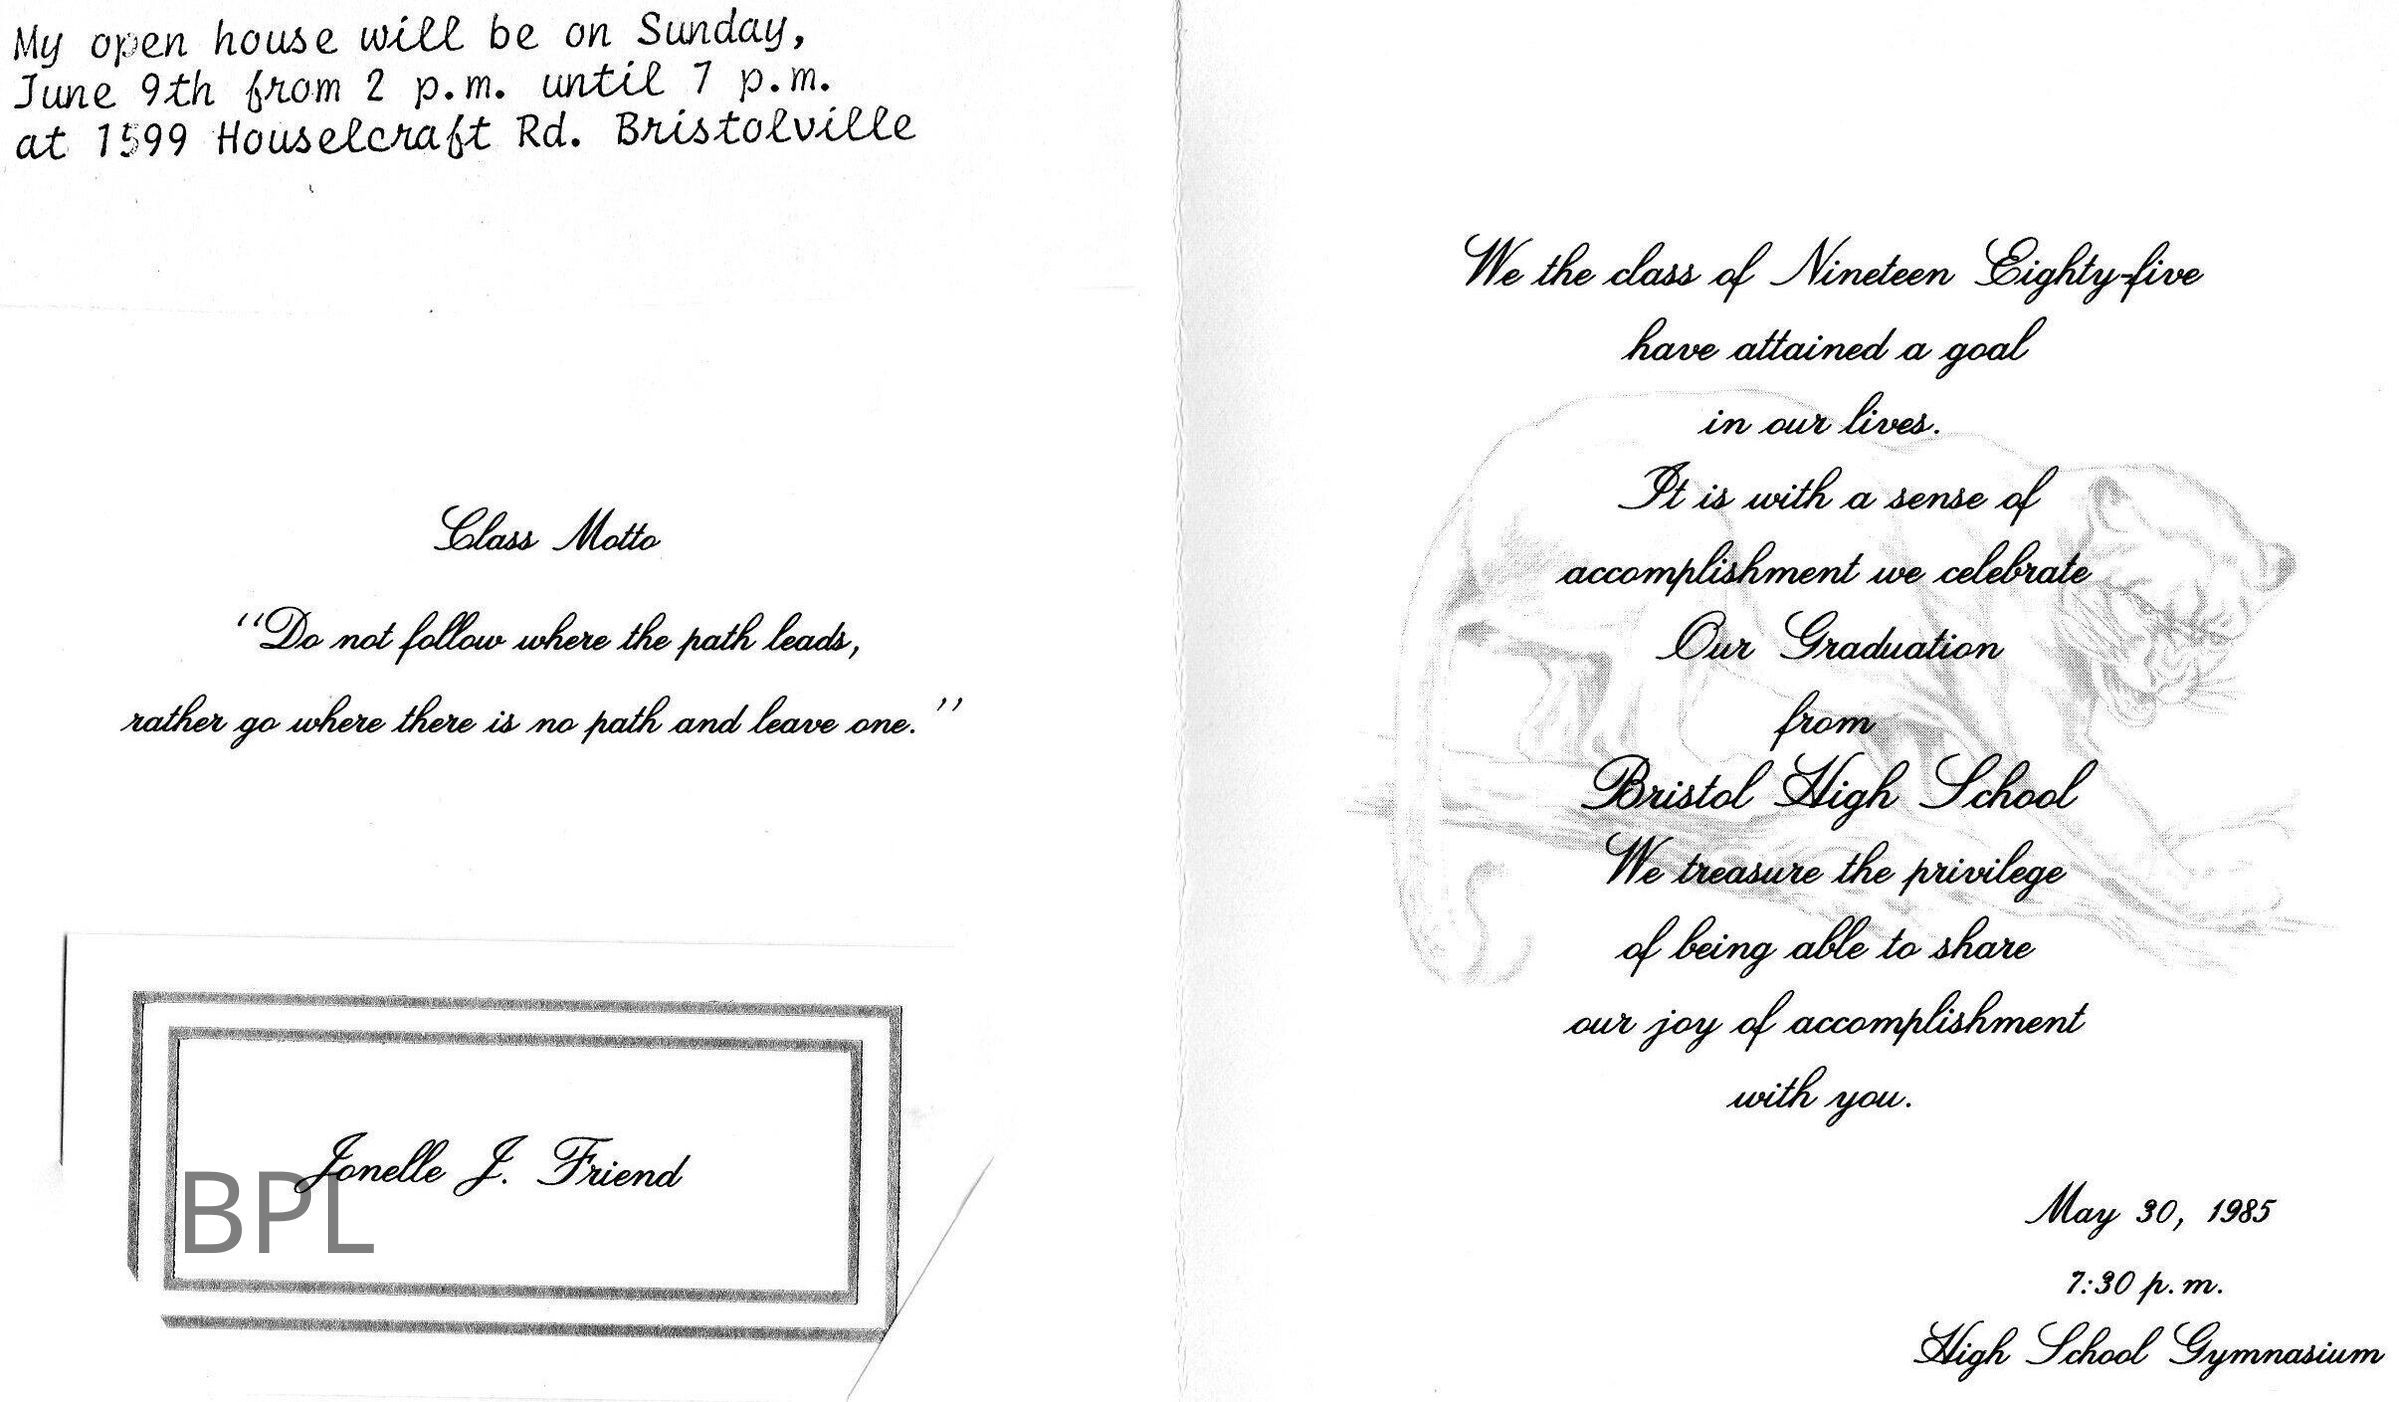 My open house will be on Sunday,
June 9th from 2 p.m. until 7 p.m.
at 1599 Houselcraft Rd. Bristolville
Class Motto
“Do not follow where the path leads,
rather go where there is no path and leave one.”
Jonelle J. Friend
BPL
We the class of Nineteen Eighty-five
have attained a goal
in our lives.
It is with a sense of
accomplishment we celebrate
Our Graduation
from
Bristol High School
We treasure the privilege
of being able to share
our joy of accomplishment
with you.
May 30, 1985
7:30 p.m.
High School Gymnasium